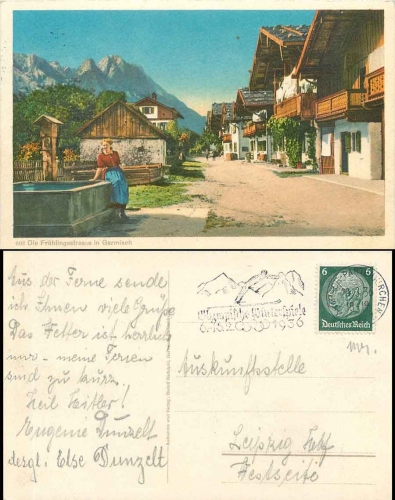 505 Die Frühlingsstrasse in Garmisch
Aus der Ferne sende
ich Ihnen viele Grüße
Das Wetter ist herrlich
nur - meine Ferien
sind zu kurz.
Heil Hitler!
Eugenie Dunzelt
desgl. Else Dunzelt
Olympische Winterspiele
6.-16.2. 1936
6 6
Deutsches Reich
Auskunftsstelle
Leipzig Hbf
Westseite